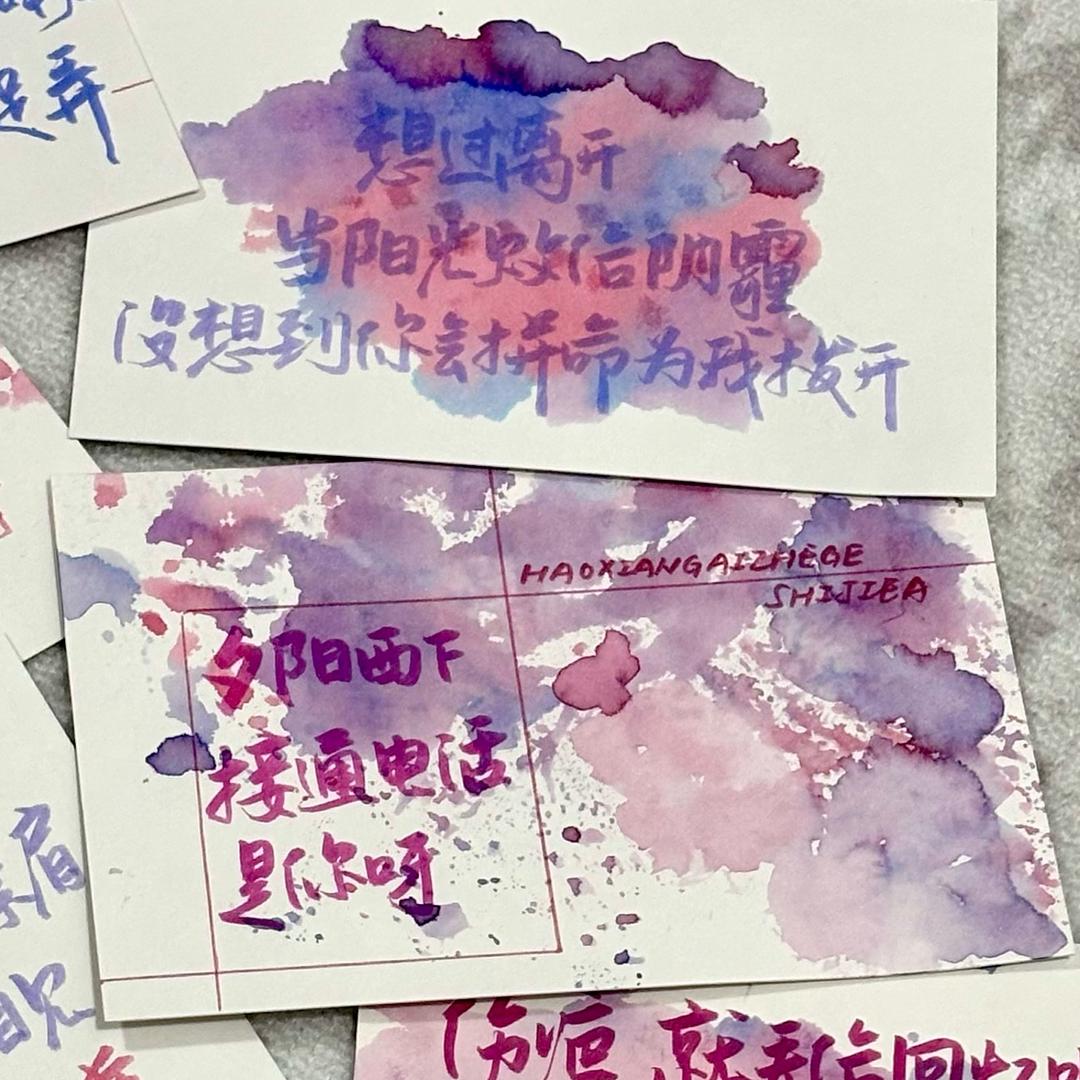 弄
想过离开
当阳光败给阴霾
没想到你会拼命为我拨开
HAOXIANGAIZHEGE
SHIJIEA
夕阳西下
接通电话
是你呀
眉
伤疤 就丢给回忆